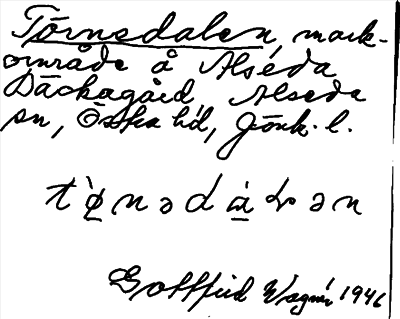 Törnsdalen, mark-
område å Alséda
Däckagård, Alseda
sn, Östra hd, Jönk. l.
t ø̀ n ə d ɑ́ ɫ ə n
Gottfrid Wagnér 1946